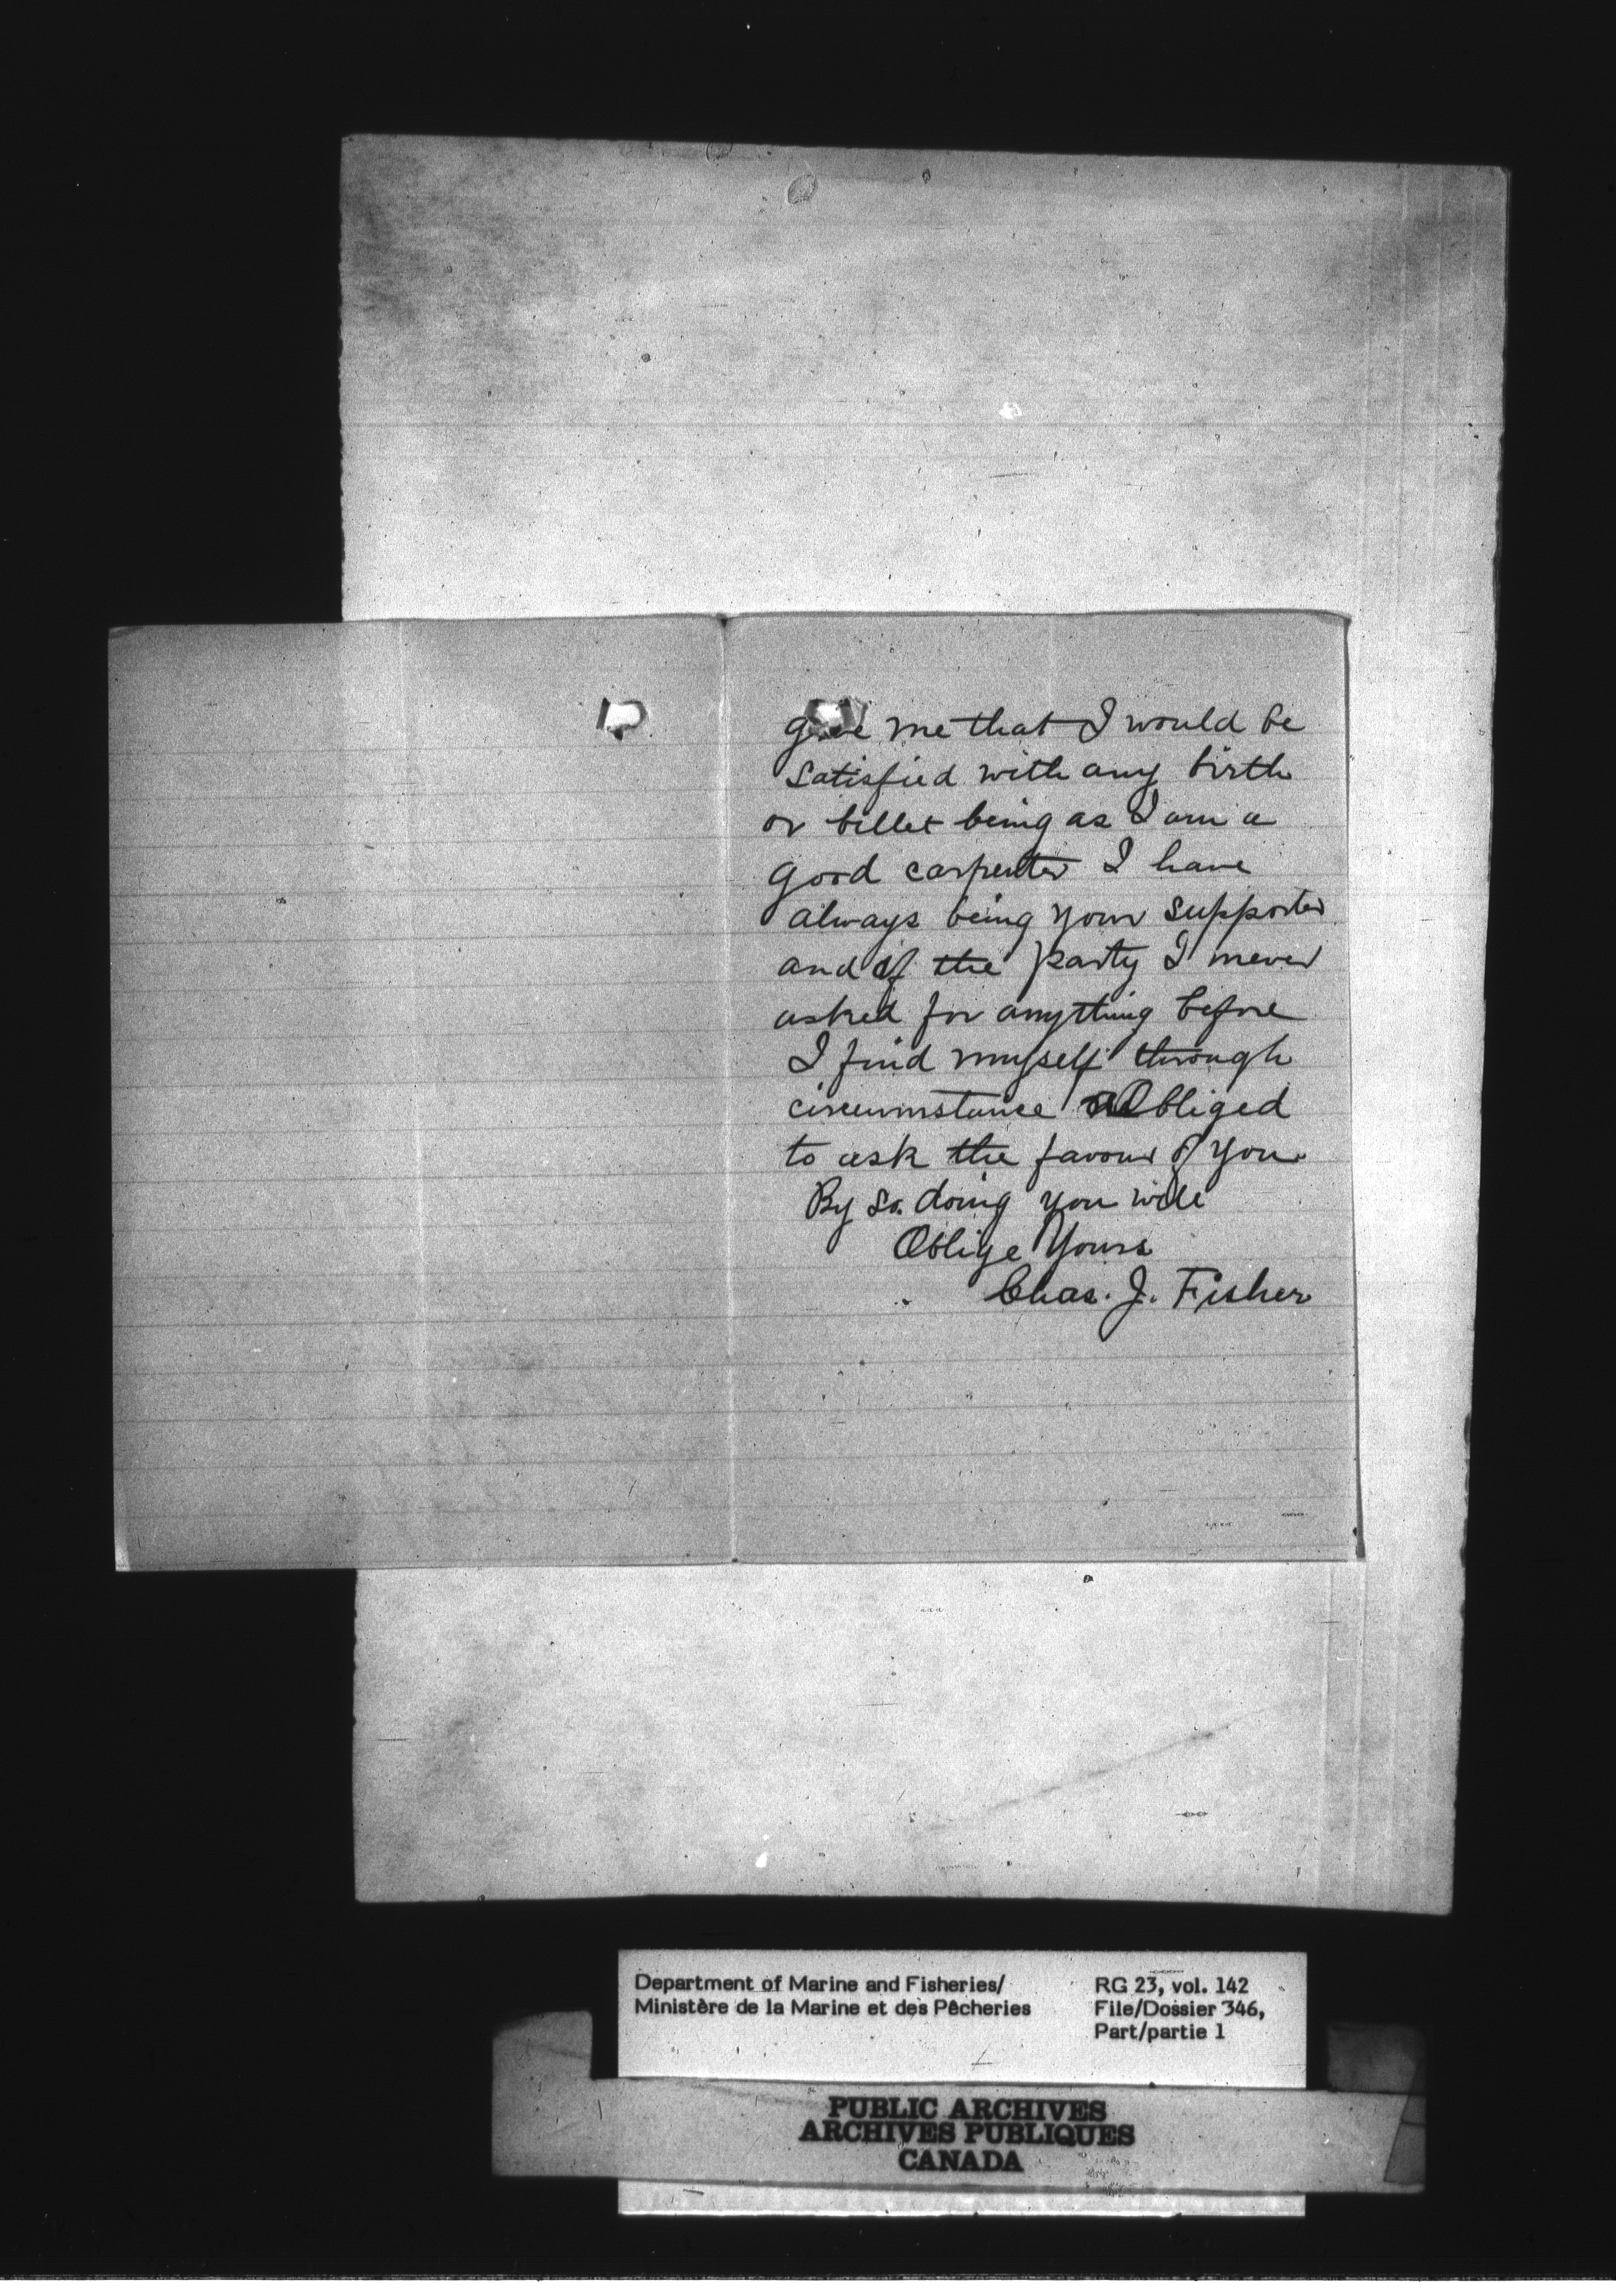 give me that I would be
satisfied with any birth
or billet being as I am a
good carpenter I have
always being your supporter
and of the party I never
asked for anything before
I find myself through
circumstance Obliged
to ask the favour of you.
By so doing you will
Oblige Yours
Chas. J. Fisher
Department of Marine and Fisheries/
Ministère de la Marine et des Pêcheries
RG 23, vol. 142
File/Dossier 346,
Part/partie 1
PUBLIC ARCHIVES
ARCHIVES PUBLIQUES
CANADA